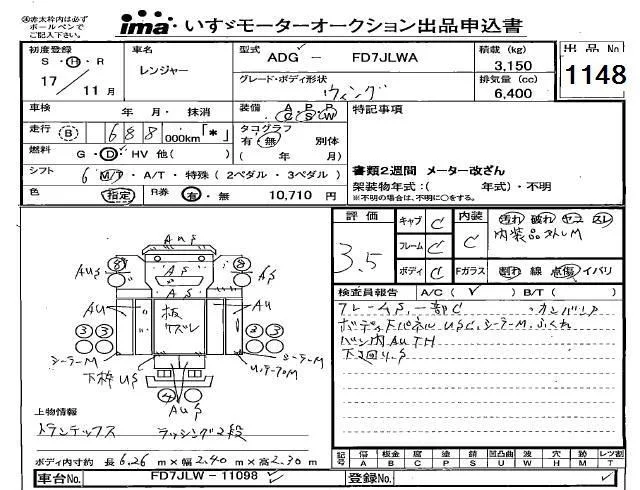 ㊟赤太枠内は必ず
ボールペンで
ご記入下さい。
ima いすゞモーターオークション出品申込書
初度登録 車名 型式 ADG － FD7JLWA 積載 (kg) 3,150 出品No
S・H・R レンジャー グレード・ボディ形状 排気量 (cc) 1148
17 11月 ウィング 6,400
車検 年 月・抹消 装備 A・P・P C S LW 特記事項
走行 B 688 000km「*」 タコグラフ 有・無 別体
燃料 G・D・HV 他( ) ( 年 月)
シフト 6 M/T・A/T・特殊 (2ペダル・3ペダル) 書類2週間 メーター改ざん
色 指定 R券 有・無 10,710 円 架装物年式:( 年式)・不明
※不明の場合は、不明に○をする。
評価 キャブ C 内装 汚れ 破れ ヤコ スレ
3.5 フレーム C C 内装品外しM
ボディ C Fガラス 割れ 線 点傷 イバリ
検査員報告 A/C( ✓ ) B/T( )
フレームS、一部C
ボディ下パネルUSC、シーラーM、ふくれ
バン内AUTH
下廻りS
AUS
8 8
AUS AS
AUS
AS
AU AU
板
ズレ
3 3 2 3
シーラーM シーラーM
下枠US
4
AUS
上物情報
トランテックス ラッシング2段
ボディ内寸約 長 6.26 m×幅 2.40 m×高 2.30 m
記号 傷A 板金B 腐C 塗P 錆S 凹凸曲U 波W 穴H 跡M レツ割T
車台No. FD7JLW－11098 登録No.